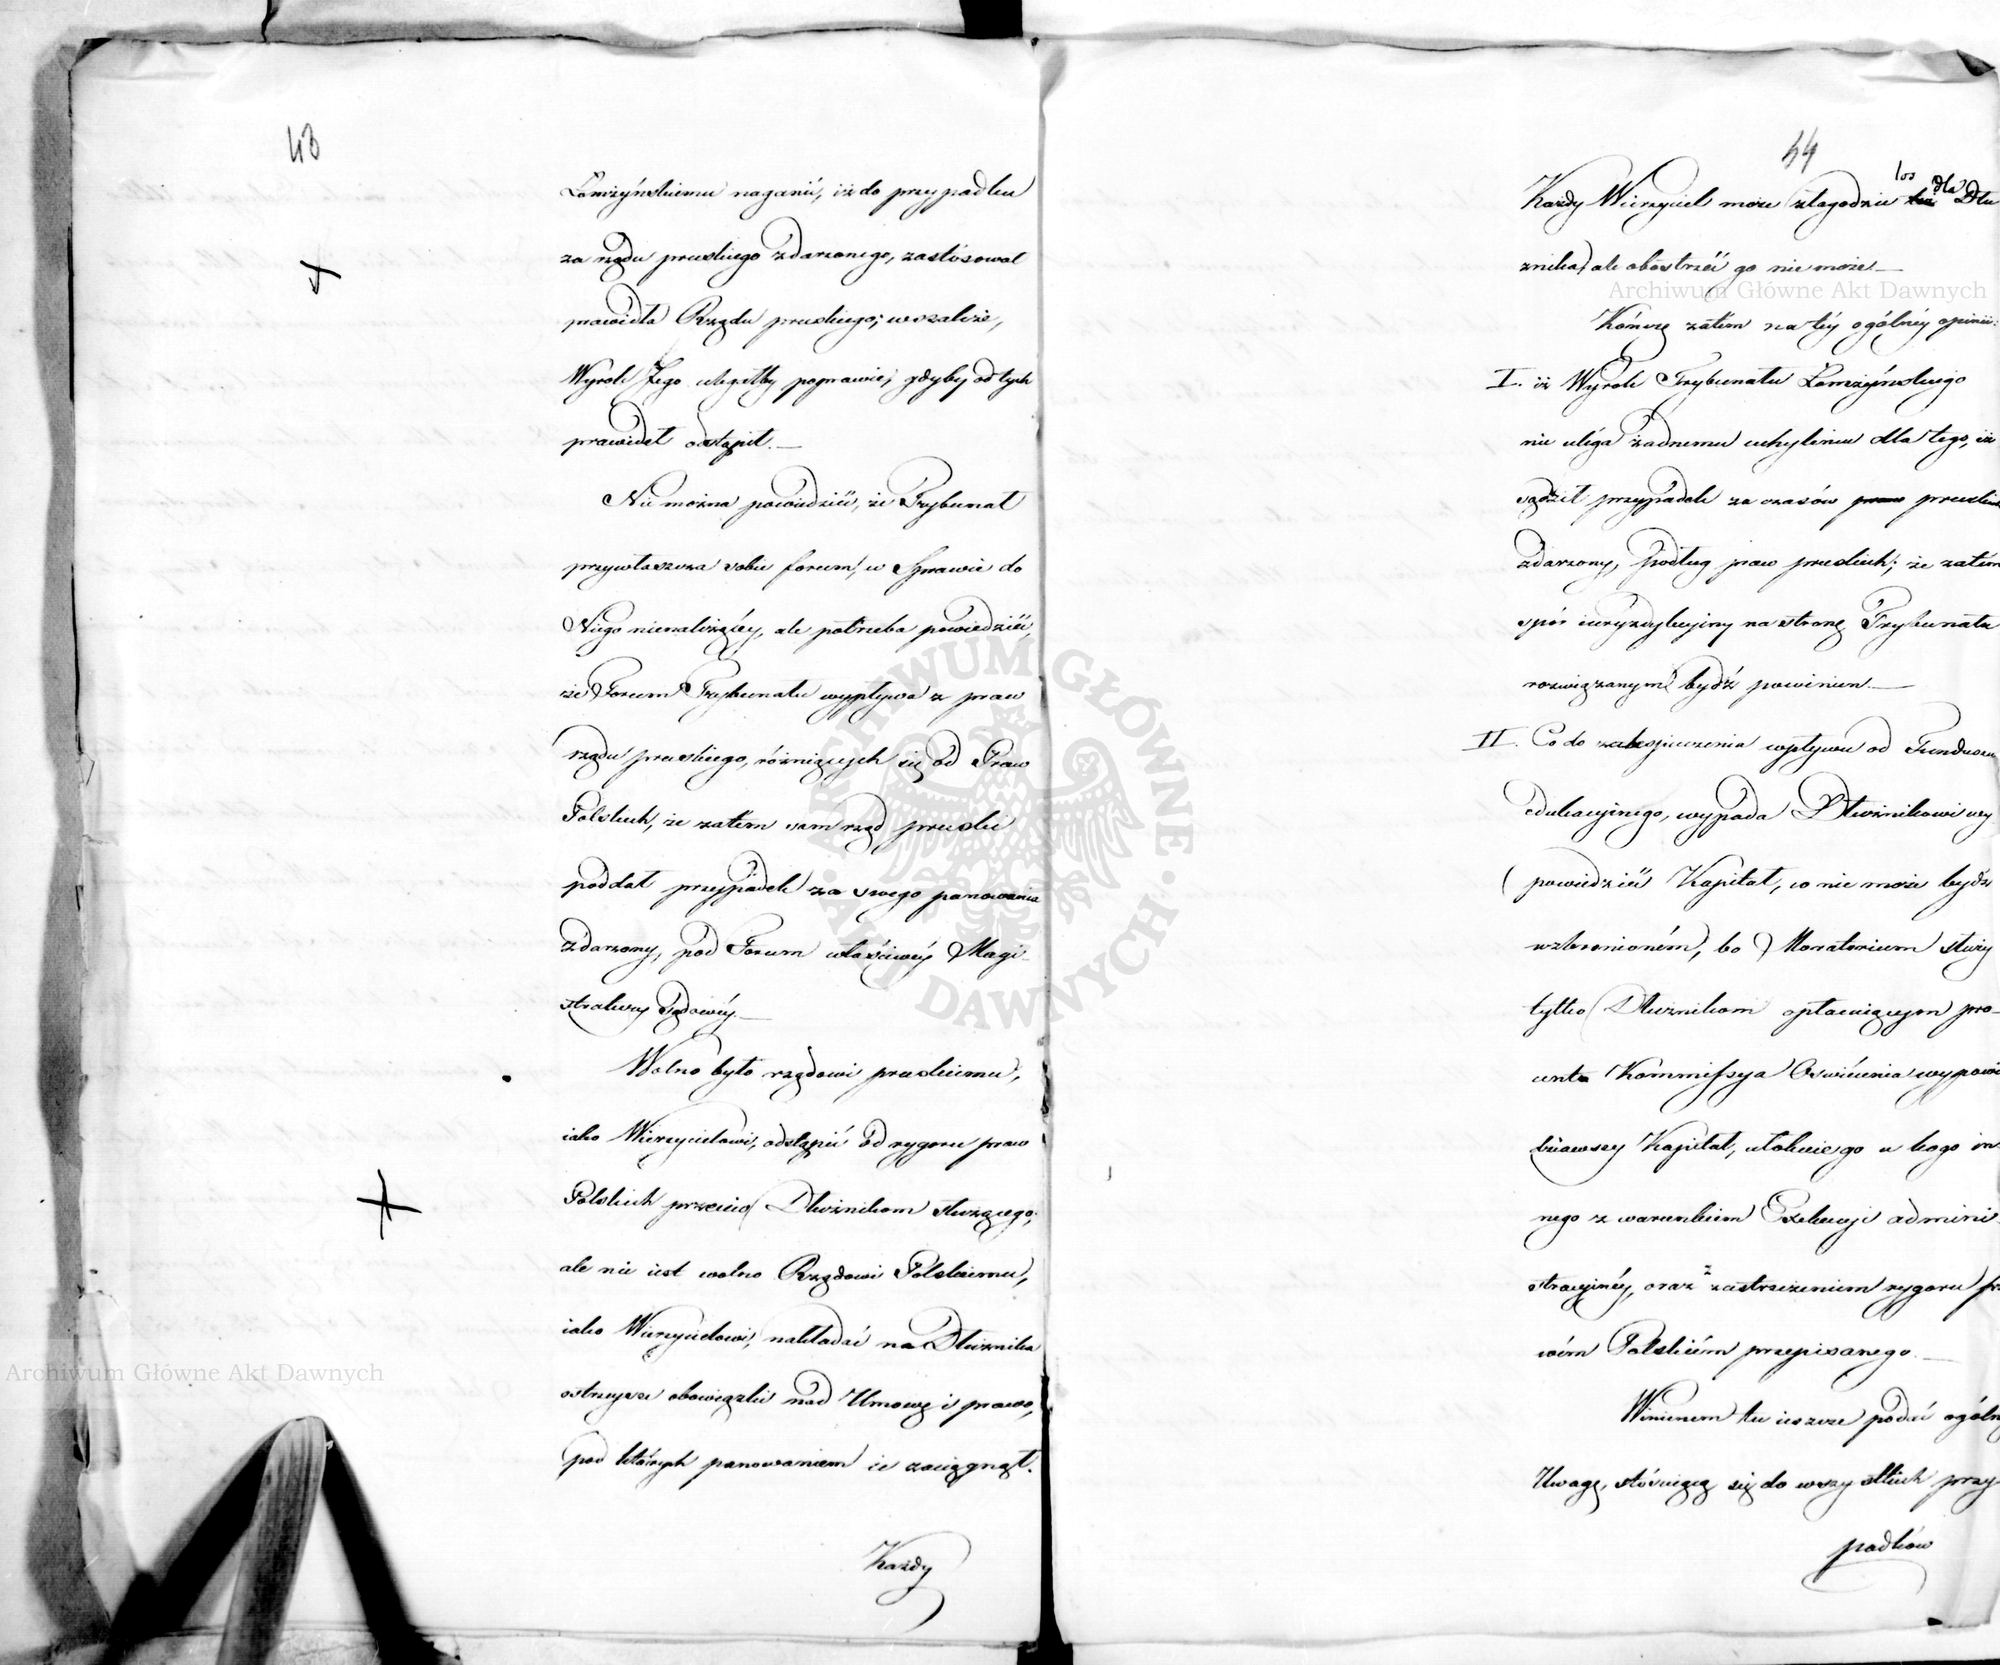 43
Łomżyńskiemu naganić, iż do przypadku
za rządu pruskiego zdarzonego, zastosował
prawidła Rządu pruskiego; wszakże,
Wyrok Jego uległby poprawie, gdyby od tych
prawideł odstąpił. —
Nie można powiedzieć, że Trybunał
przywłaszcza sobie forum, w Sprawie do
Niego nienależącey, ale potrzeba powiedzieć,
że Forum Trybunału wypływa z praw
rządu pruskiego, różniących się od Praw
Polskich, że zatem sam rząd pruski
poddał przypadek za swego panowania
zdarzony, pod Forum właściwéy Magi-
stratury Sądowéy. —
Wolno było rządowi pruskiemu,
iako Wierzycielowi, odstąpić od rygoru praw
Polskich przeciw Dłużnikom służącego;
ale nie iest wolno Rządowi Polskiemu,
iako Wierzycielowi, nakładać na Dłużnika
ostrzejsze obowiązki nad Umowę i prawo,
pod których panowaniem ie zaciągnął.
Każdy
44
Każdy Wierzyciel może złagodzić los dla Dłu
żnika, ale obostrzéć go nie może. —
Kończę zatem na téy ogólnéy opinii:
I. iż Wyrok Trybunału Łomżyńskiego
nie uléga żadnemu uchyleniu dla tego, iż
sądził przypadek za czasów pruskich
zdarzony, podług praw pruskich; że zatém
spór iuryzdykcyiny na stronę Trybunału
rozwiązanym bydź powinien. —
II. Co do zabespieczenia wpływu od Funduszu
edukacyinego, wypada Dłużnikowi wy-
powiedzieć Kapitał, co nie może bydź
wzbronioném, bo Moratorium służy
tylko Dłużnikom opłacaiącym pro-
centa Kommissya Oświécenia wypowie
dziawszy Kapitał, ulokuie go u kogo in-
nego z warunkiem Exekucyi admini-
stracyinéy, oraz z zastrzeżeniem rygoru pra
wém Polskiém przepisanego. —
Winienem tu ieszcze podać ogólną
Uwagę, stósuiącą się do wszystkich przy-
padków
Archiwum Główne Akt Dawnych
Archiwum Główne Akt Dawnych
ARCHIWUM GŁÓWNE · AKT DAWNYCH ·